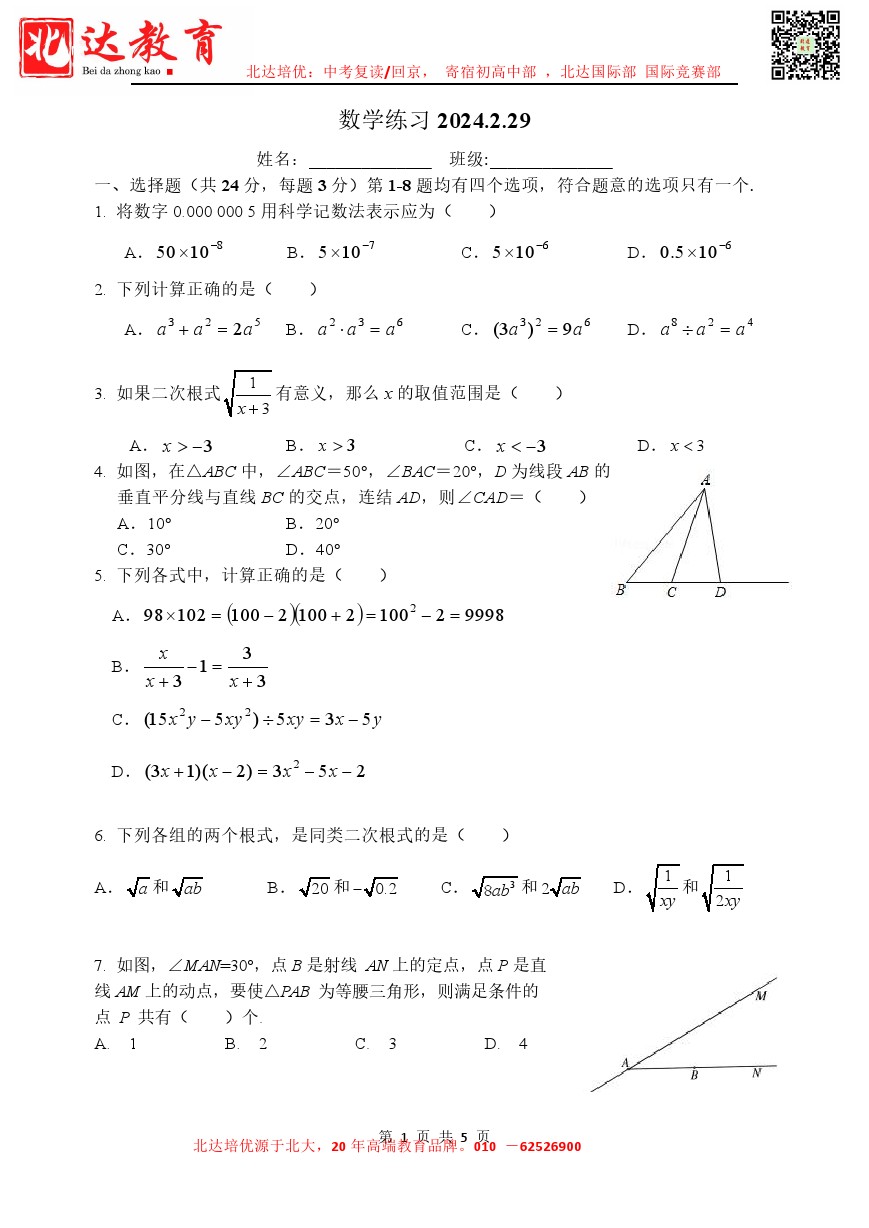 北达教育
Bei da zhong kao
北达培优：中考复读/回京， 寄宿初高中部 ，北达国际部 国际竞赛部
数学练习 2024.2.29
姓名：______________ 班级:______________
一、选择题（共 24 分，每题 3 分）第 1-8 题均有四个选项，符合题意的选项只有一个.
1. 将数字 0.000 000 5 用科学记数法表示应为（　　）
A．50×10⁻⁸ B．5×10⁻⁷ C．5×10⁻⁶ D．0.5×10⁻⁶
2. 下列计算正确的是（　　）
A．a³+a²=2a⁵ B．a²·a³=a⁶ C．(3a³)²=9a⁶ D．a⁸÷a²=a⁴
3. 如果二次根式√(1/(x+3))有意义，那么 x 的取值范围是（　　）
A．x＞−3 B．x＞3 C．x＜−3 D．x＜3
4. 如图，在△ABC 中，∠ABC＝50°，∠BAC＝20°，D 为线段 AB 的
垂直平分线与直线 BC 的交点，连结 AD，则∠CAD＝（　　）
A．10° B．20°
C．30° D．40°
A
B C D
5. 下列各式中，计算正确的是（　　）
A．98×102=(100−2)(100+2)=100²−2=9998
B．x/(x+3)−1=3/(x+3)
C．(15x²y−5xy²)÷5xy=3x−5y
D．(3x+1)(x−2)=3x²−5x−2
6. 下列各组的两个根式，是同类二次根式的是（　　）
A．√a 和 √ab B．√20 和 −√0.2 C．√8ab³ 和 2√ab D．√(1/xy) 和 √(1/2xy)
7. 如图，∠MAN=30°，点 B 是射线 AN 上的定点，点 P 是直
线 AM 上的动点，要使△PAB 为等腰三角形，则满足条件的
点 P 共有（　　）个.
A. 1 B. 2 C. 3 D. 4
M
A B N
第 1 页 共 5 页
北达培优源于北大，20 年高端教育品牌。010 －62526900